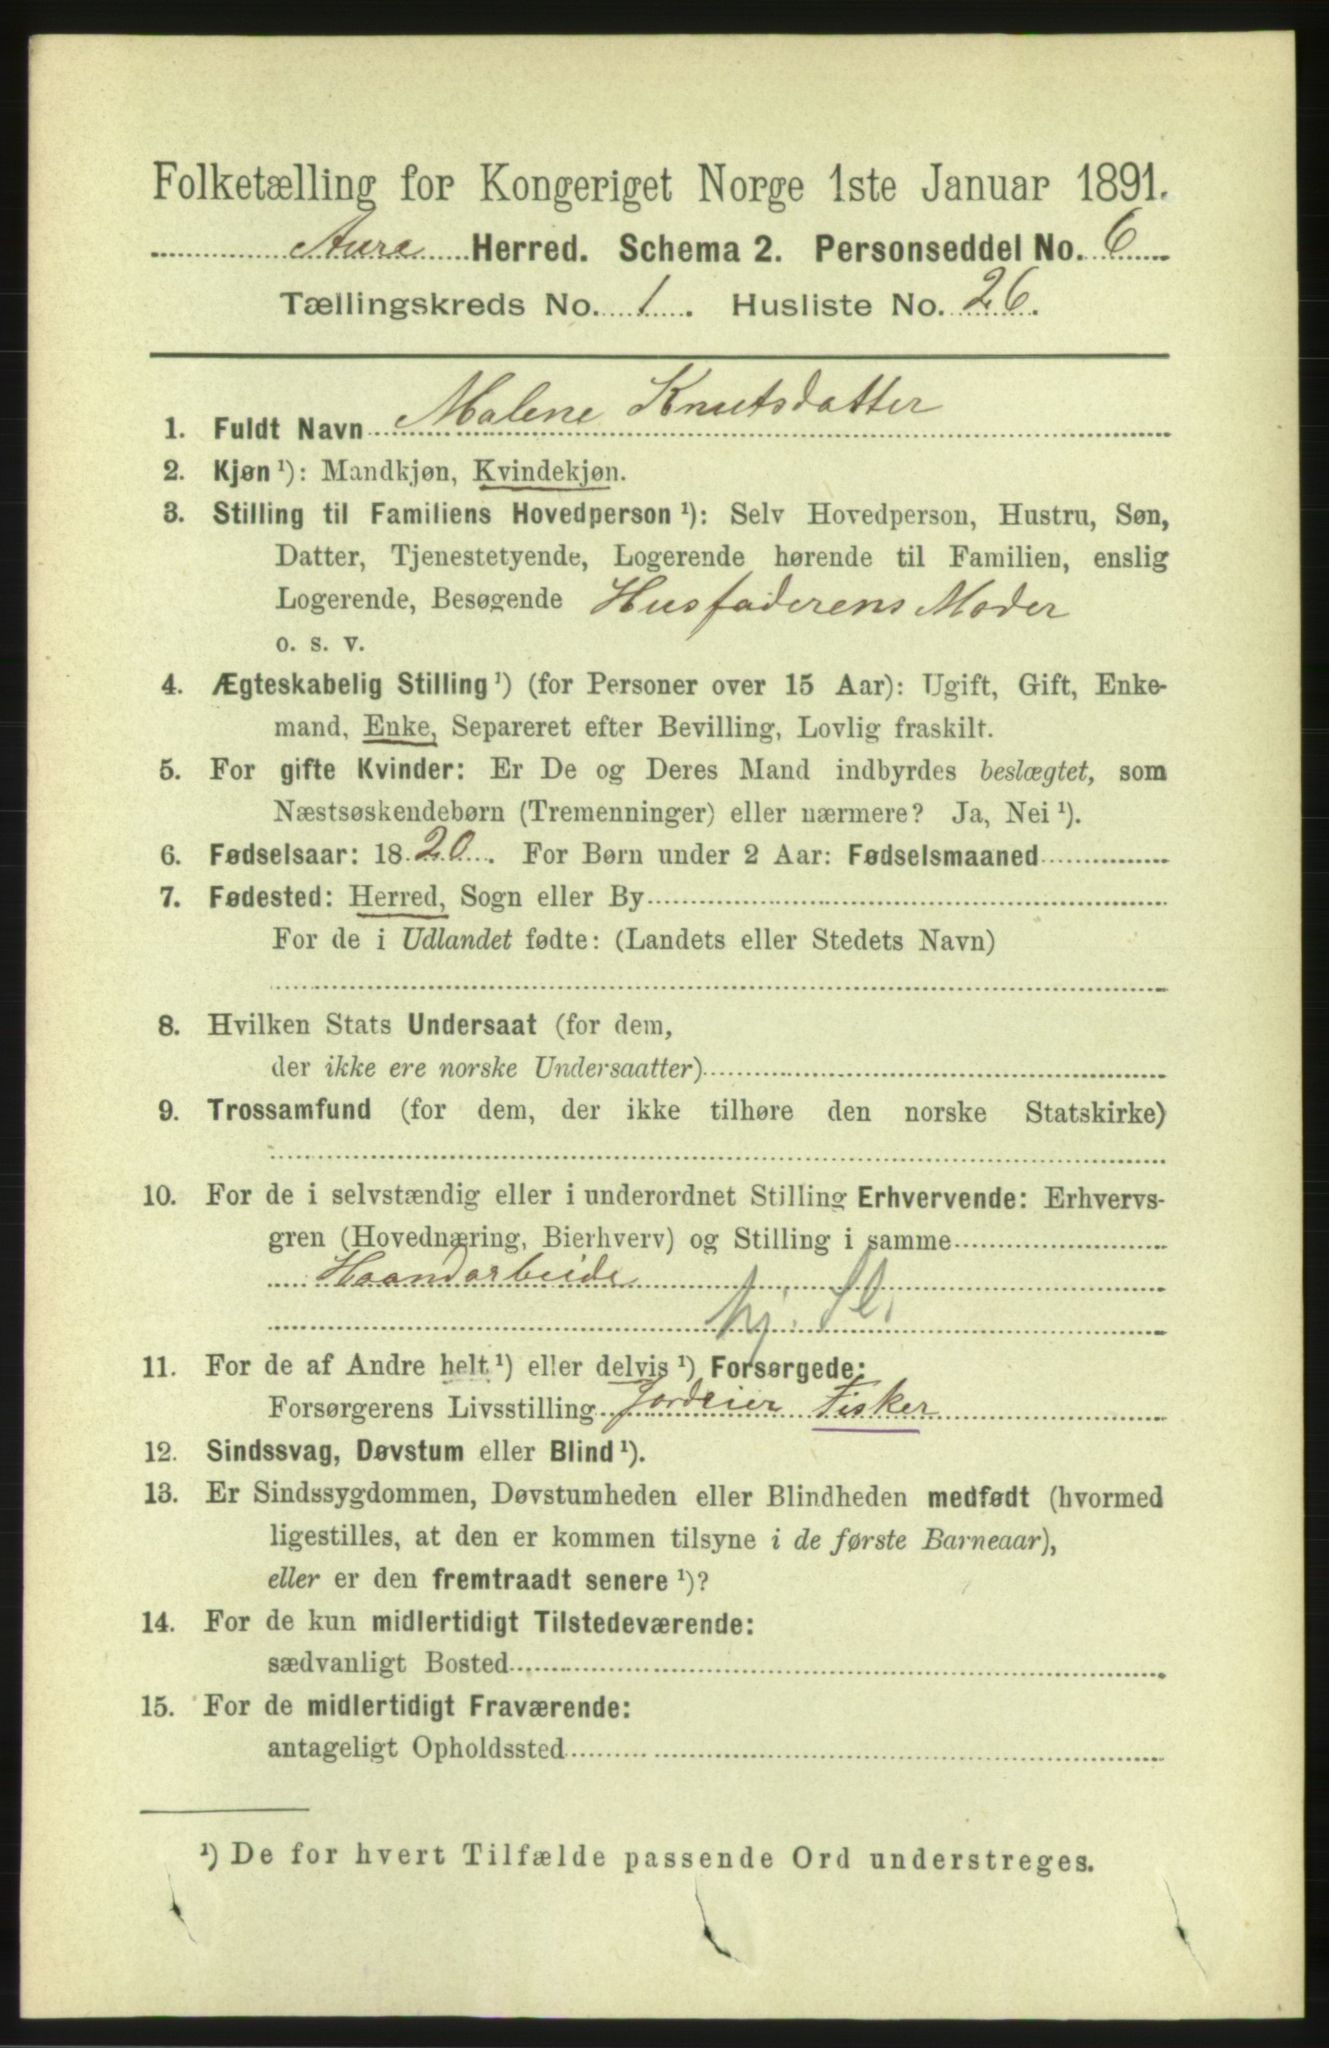 Folketælling for Kongeriget Norge 1ste Januar 1891.
Aure Herred. Schema 2. Personseddel No. 6
Tællingskreds No. 1. Husliste No. 26.
1. Fuldt Navn Malene Knutsdatter
2. Kjøn ¹): Mandkjøn, Kvindekjøn.
3. Stilling til Familiens Hovedperson ¹): Selv Hovedperson, Hustru, Søn,
Datter, Tjenestetyende, Logerende hørende til Familien, enslig
Logerende, Besøgende Husfaderens Moder
o. s. v.
4. Ægteskabelig Stilling ¹) (for Personer over 15 Aar): Ugift, Gift, Enke-
mand, Enke, Separeret efter Bevilling, Lovlig fraskilt.
5. For gifte Kvinder: Er De og Deres Mand indbyrdes beslægtet, som
Næstsøskendebørn (Tremenninger) eller nærmere? Ja, Nei ¹).
6. Fødselsaar: 1820. For Børn under 2 Aar: Fødselsmaaned
7. Fødested: Herred, Sogn eller By
For de i Udlandet fødte: (Landets eller Stedets Navn)
8. Hvilken Stats Undersaat (for dem,
der ikke ere norske Undersaatter)
9. Trossamfund (for dem, der ikke tilhøre den norske Statskirke)
10. For de i selvstændig eller i underordnet Stilling Erhvervende: Erhvervs-
gren (Hovednæring, Bierhverv) og Stilling i samme
Haandarbeide
11. For de af Andre helt ¹) eller delvis ¹) Forsørgede:
Forsørgerens Livsstilling Jordeier Fisker
12. Sindssvag, Døvstum eller Blind ¹).
13. Er Sindssygdommen, Døvstumheden eller Blindheden medfødt (hvormed
ligestilles, at den er kommen tilsyne i de første Barneaar),
eller er den fremtraadt senere ¹)?
14. For de kun midlertidigt Tilstedeværende:
sædvanligt Bosted
15. For de midlertidigt Fraværende:
antageligt Opholdssted
¹) De for hvert Tilfælde passende Ord understreges.